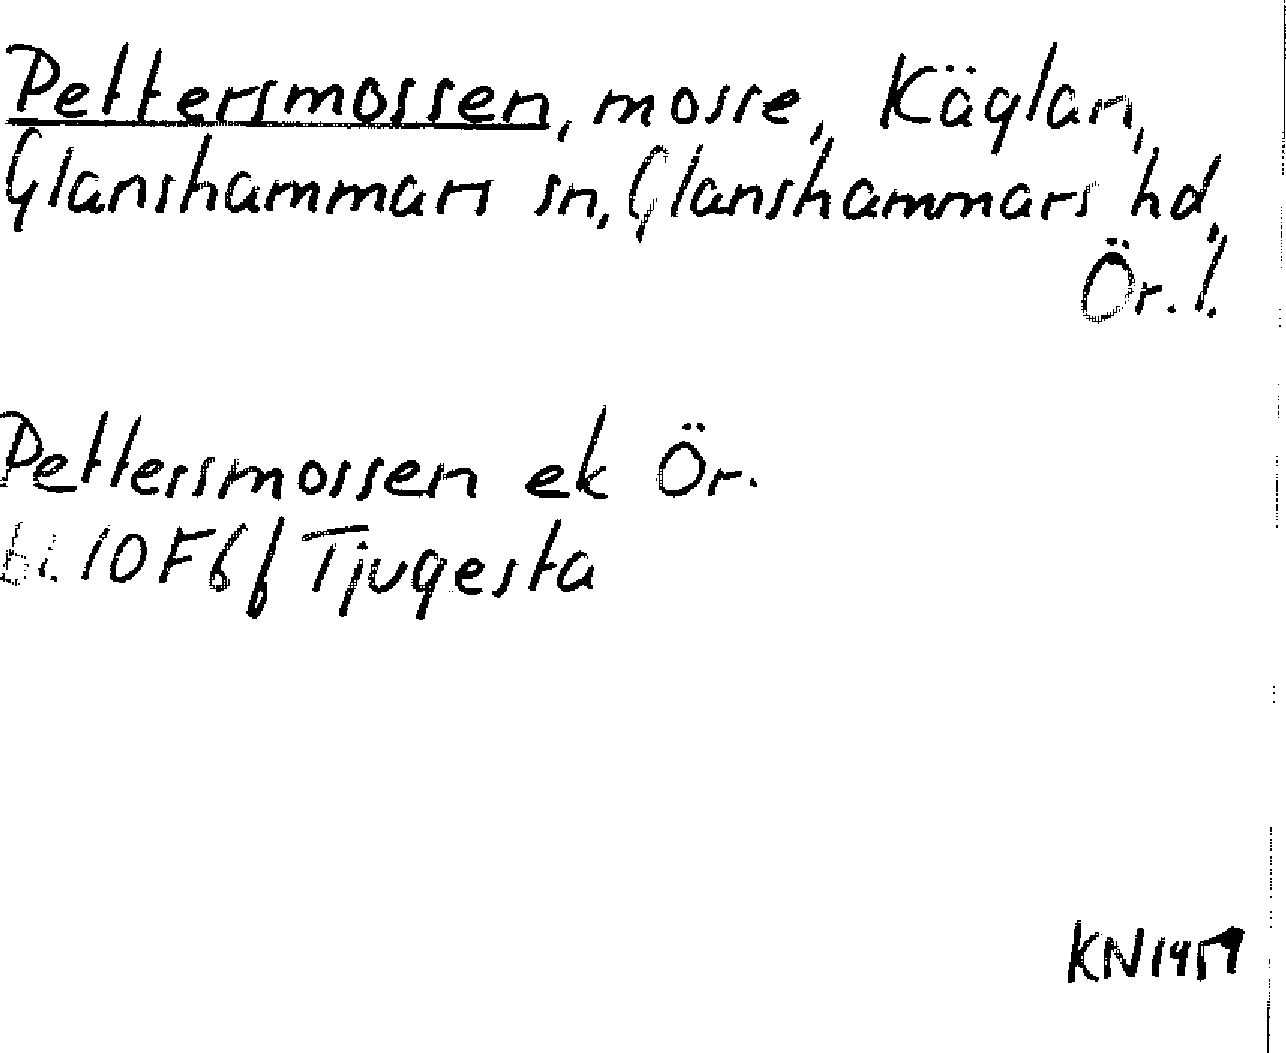 Pettersmossen, mosse, Käglan,
Glanshammars sn, Glanshammars hd,
Ör. l.
Pettersmossen ek Ör.
bl. 10F6f Tjugesta